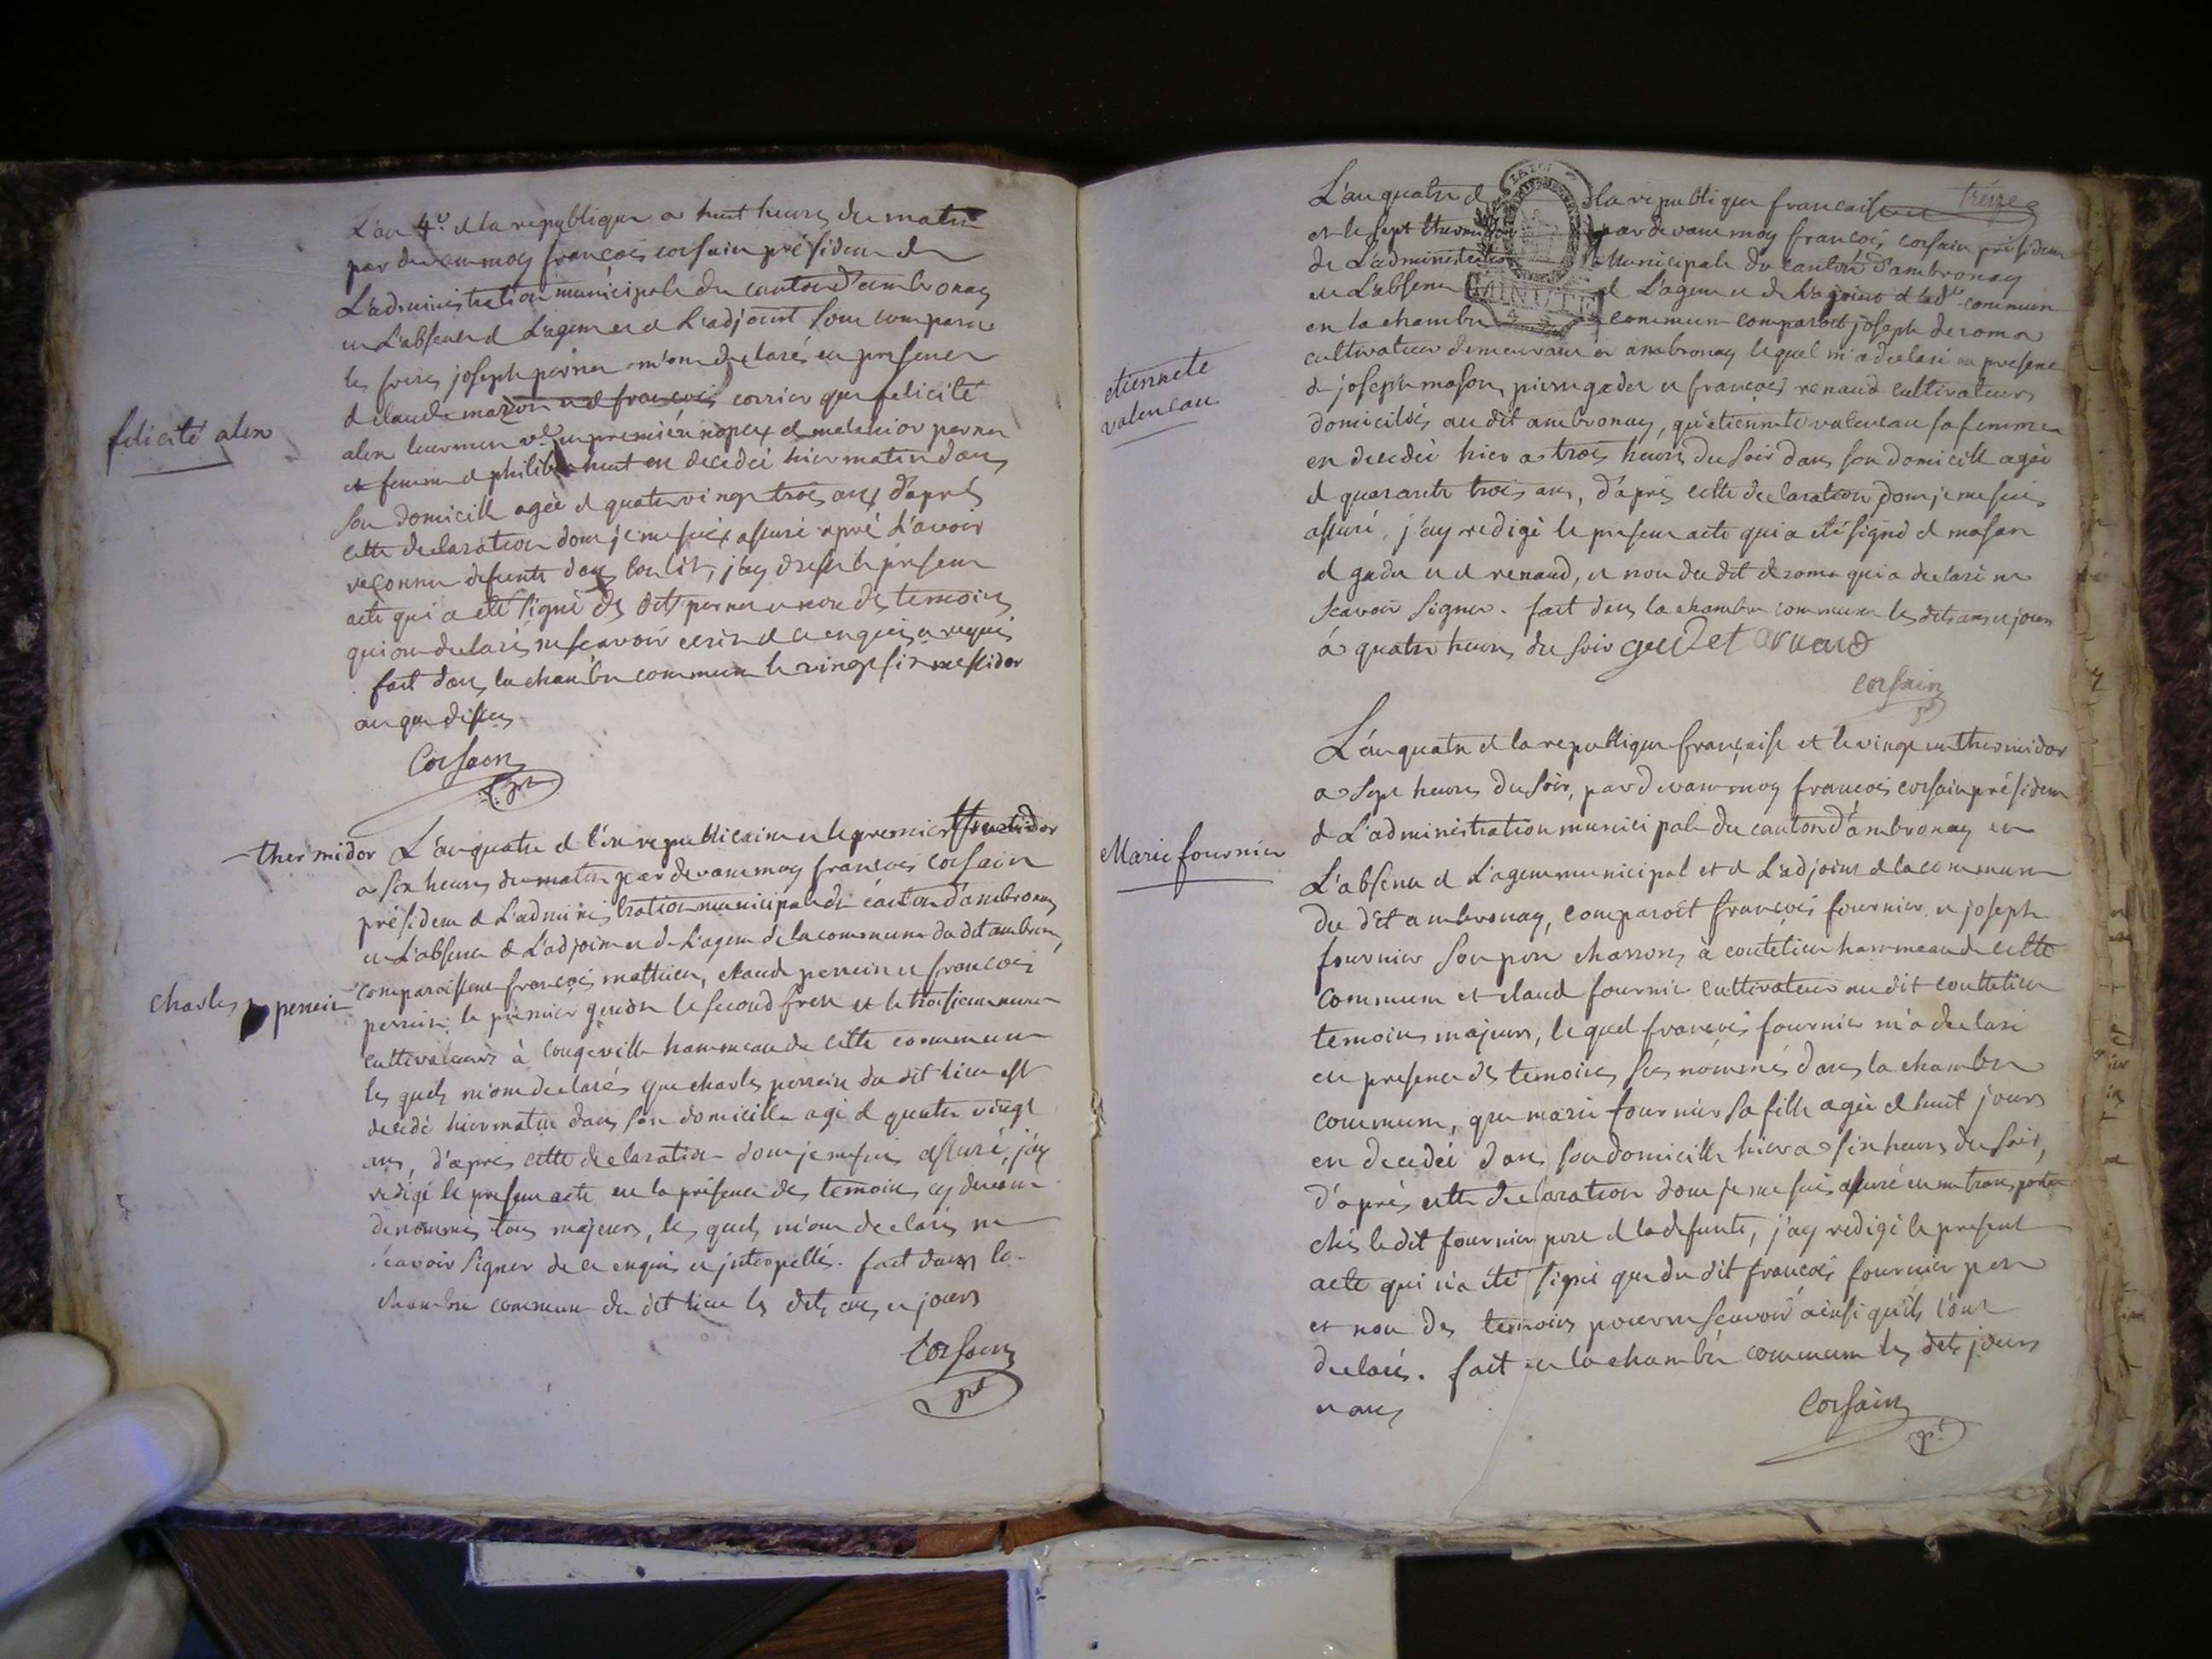 L'an 4e d la republique a huit heures du matin
par devan moy francois corsain présiden de
L'administration municipale du canton d'ambronay
en L'absence d L'agen et d L'adjoint sont comparu
les frères joseph m'on declaré en presence
d claude mazon et d francois corrier que felicité
felicité alex
alex leur mere ve en premiere nopces d melchior
et femme d philiber huut est decedée hier matin dans
son domicille agée d quatre vingt trois ans, d'aprés
cette declaration dont je me suis assuré apré L'avoir
reconnu defunte dans son lit, j'ay dressé le presen
acte qui a eté signé des dits et non des temoins
qui on declarés ne scavoir ecrire d ce enquis et requis
fait dans la chambre commune le vingt six messidor
an que dessus
Corsain
pt
thermidor L'an quatre d l'ere republicaine et le premier fructidor
a six heures du matin par devan moy francois Corsain
présiden d L'administration municipale du canton d'ambronay
en L'absence d L'adjoin et d L'agen d la commune du dit ambron,
comparoissent francois mathieu, claude perrein et francois
charles perrein
perrein le premier gendre le second frere et le troisieme neveu
cultivateurs à longeville hammeau de cette commune
les quels m'on declarés que charles perrein du dit lieu est
decedé hier matin dans son domicille agé d quatre vingt
ans, d'aprés cette declaration dont je me suis assuré, j'ay
redigé le presen acte en la présence des temoins cy devan
denommés tous majeurs, les quels m'on declarés ne
scavoir signer de ce enquis et interpellés. fait dans la
chambre commune du dit lieu les dits ans et jours
Corsain
pt
L'an quatre d la republique francaise treize
et le sept thermidor par devant moy francois corsain présiden
de L'administration Municipale du canton d'ambronay
LA LOI
MINUTE
en L'absence d L'agen et de L'adjoint d lade commun
en la chambre commune comparoit joseph deroma
cultivateur demeurant a ambronay lequel m'a declaré en presence
etiennete
valencau
d joseph mason, pierre gudet et francois renaud cultivateurs
domiciliés au dit ambronay, qu'etiennete valencau sa femme
en decedée hier a trois heures du soir dans son domicille agée
d quarante trois ans, d'aprés cette declaration dont je me suis
assuré, j'ay redigé le presen acte qui a eté signé d mason
d gudet et d renaud, et non du dit deroma qui a declaré ne
scavoir signer. fait dans la chambre commune les dits ans et jours
à quatre heures du soir
corsain
pt
L'an quatre d la republique française et le vingt un thermidor
a sept heures du soir, par devan moy francois corsain présiden
d L'administration municipale du canton d'ambronay en
Marie fournier
L'absence d L'agen municipal et d L'adjoint d la commune
du dit ambronay, comparoit francois fournier et joseph
fournier son pere charrons à coutelieu hammeau de cette
commune et claud fournier cultivateur au dit couttelieu
temoins majeurs, le quel francois fournier m'a declaré
en presence des temoins sus nommés dans la chambre
commune, que marie fournier sa fille agée d huit jours
en decedée dans son domicille hier a six heures du soir,
d'aprés cette declaration dont je me suis assuré en me transportan
chés le dit fournier pere d la defunte, j'ay redigé le present
acte qui n'a été signé que du dit francois fournier pere
et non des temoins pour ne scavoir ainsi qu'ils l'ont
declaré. fait en la chambre commune les dits jours
et ans
Corsain
pt